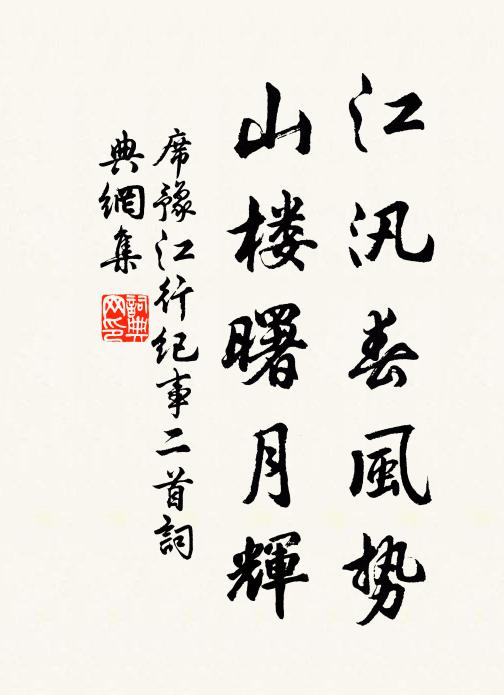 江汎春風勢
山楼曙月輝
席豫江行纪事二首詞
典網集
詞典网印